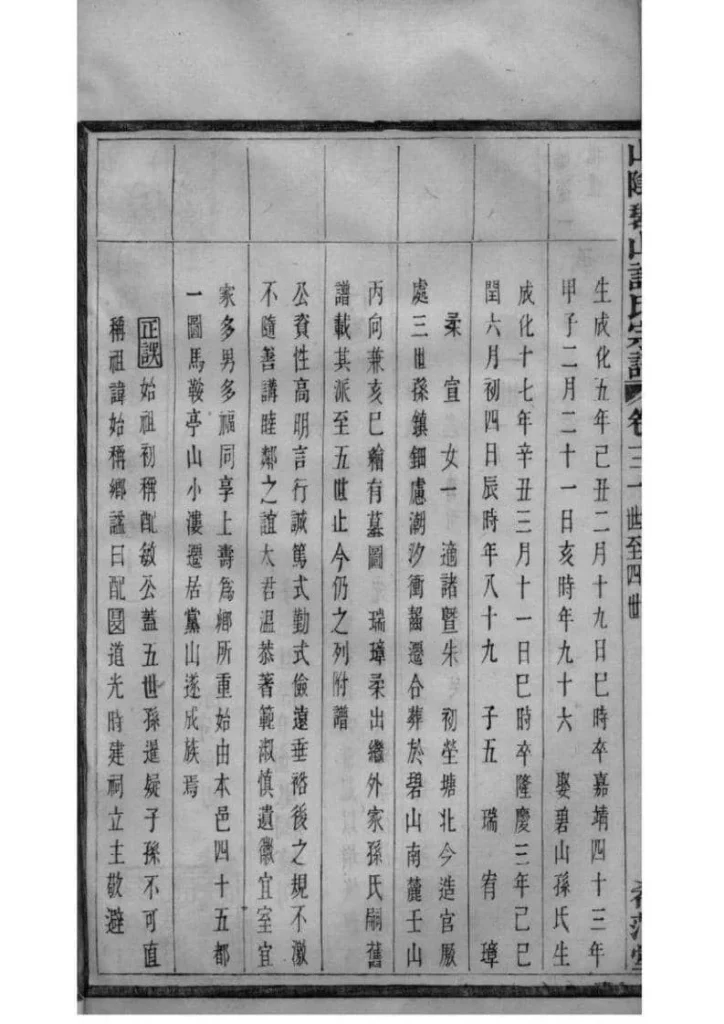 山陰碧山許氏宗譜 卷三 一世至四世
生成化五年己丑二月十九日巳時卒嘉靖四十三年
甲子二月二十一日亥時年九十六 娶碧山孫氏生
成化十七年辛丑三月十一日巳時卒隆慶三年己巳
閏六月初四日辰時年八十九 子五 瑞 宥 璋
柔 宣 女一 適諸暨朱 初塋塘北今造官厫
處三世孫鎮鈿慮潮汐衝齧遷合葬於碧山南麓壬山
丙向兼亥巳繪有墓圖 瑞璋柔出繼外家孫氏嗣舊
譜載其派至五世止今仍之列附譜
公資性高明言行誠篤式勤式儉遠垂裕後之規不激
不隨善講睦鄰之誼太君溫恭著範淑慎遺徽宜室宜
家多男多福同享上壽爲鄉所重始由本邑四十五都
一圖馬鞍亭山小漊遷居黨山遂成族焉
正誤始祖初稱配敏公蓋五世孫暹疑子孫不可直
稱祖諱始稱鄉謚曰配 道光時建祠立主敬避